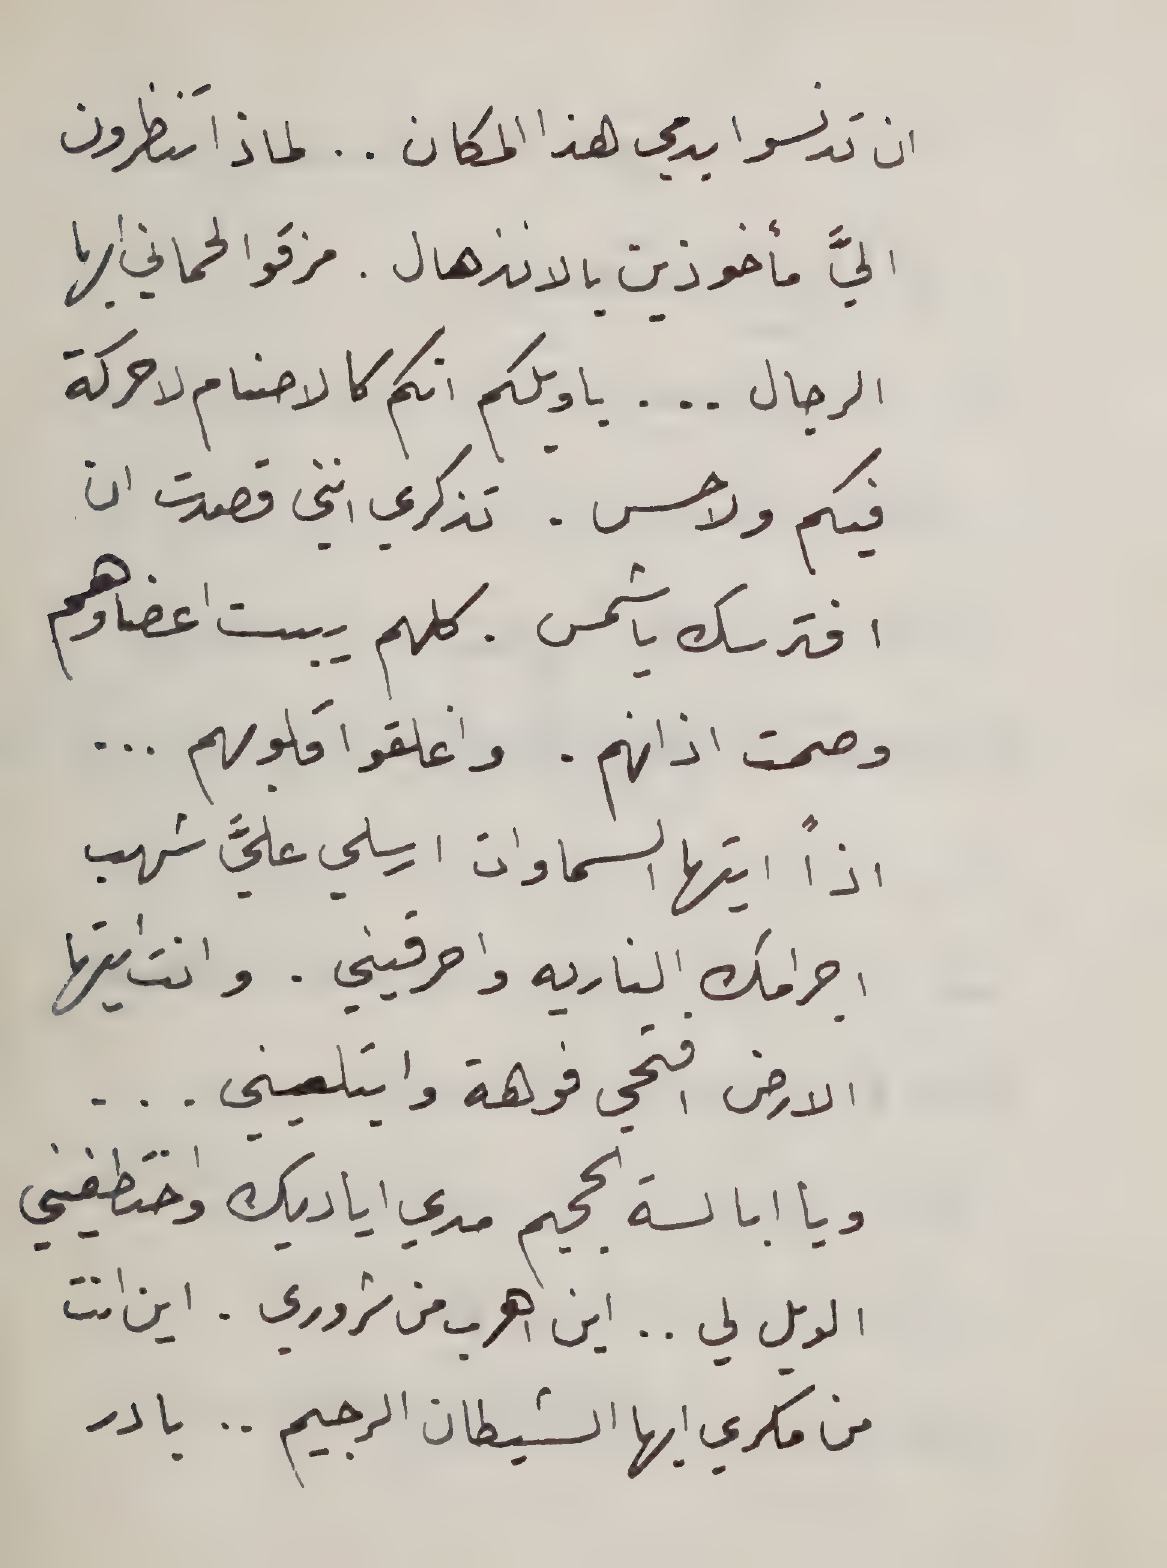 ان تدنسوا بدمي هذا المكان .. لماذا تنظرون
اليَّ مأخوذين بالانذهال . مزقوا لحماني ايها
الرجال ... ياويلكم انكم كالاصنام لا حركة
فيكم ولا حس . تذكري انني قصدت ان
افترسك ياشمس . كلهم يبست اعضاوهم
وصمت اذانهم . واغلقوا قلوبهم ...
اذاً ايتها السماوات ارسلي عليَّ شهب
اجرامك الناريه واحرقيني . وانت ايتها
الارض افتحي فوهة وابتلعيني ...
ويا ابالسة الجحيم مدي اياديك واختطفيني
الويل لي .. اين اهرب من شروري . اين انت
من مكري ايها الشيطان الرجيم .. بادر